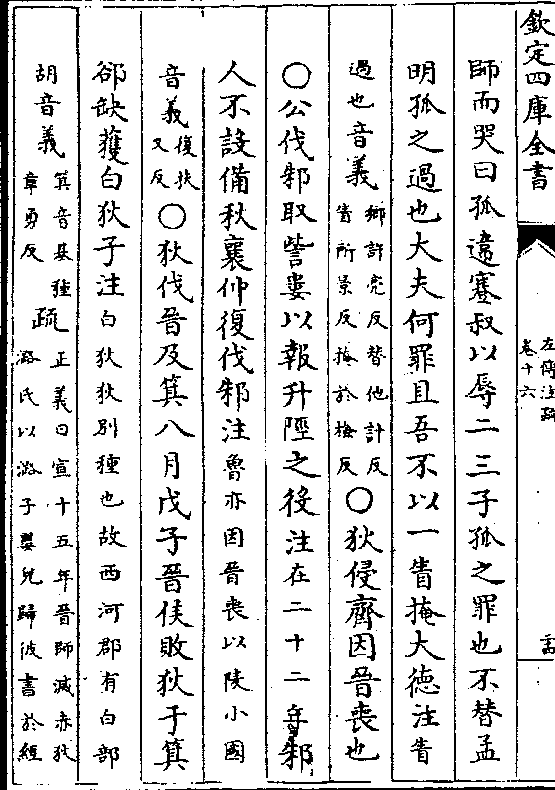 欽定四庫全書
左傳注疏
卷十六
師而哭曰孤違蹇叔以辱二三子孤之罪也不替孟
明孤之過也大夫何罪且吾不以一眚掩大徳注眚
過也音義鄉許亮反替他計反眚所景反掩於檢反○狄侵齊因晉喪也
○公伐邾取訾婁以報升陘之役注在二十二年邾
人不設備秋襄仲復伐邾注魯亦因晉喪以陵小國
音義復扶又反○狄伐晉及箕八月戊子晉侯敗狄于箕
郤缺獲白狄子注白狄狄别種也故西河郡有白部
胡音義箕音基種章勇反疏正義曰宣十五年晉師滅赤狄潞氏以潞子嬰兒歸彼書於經